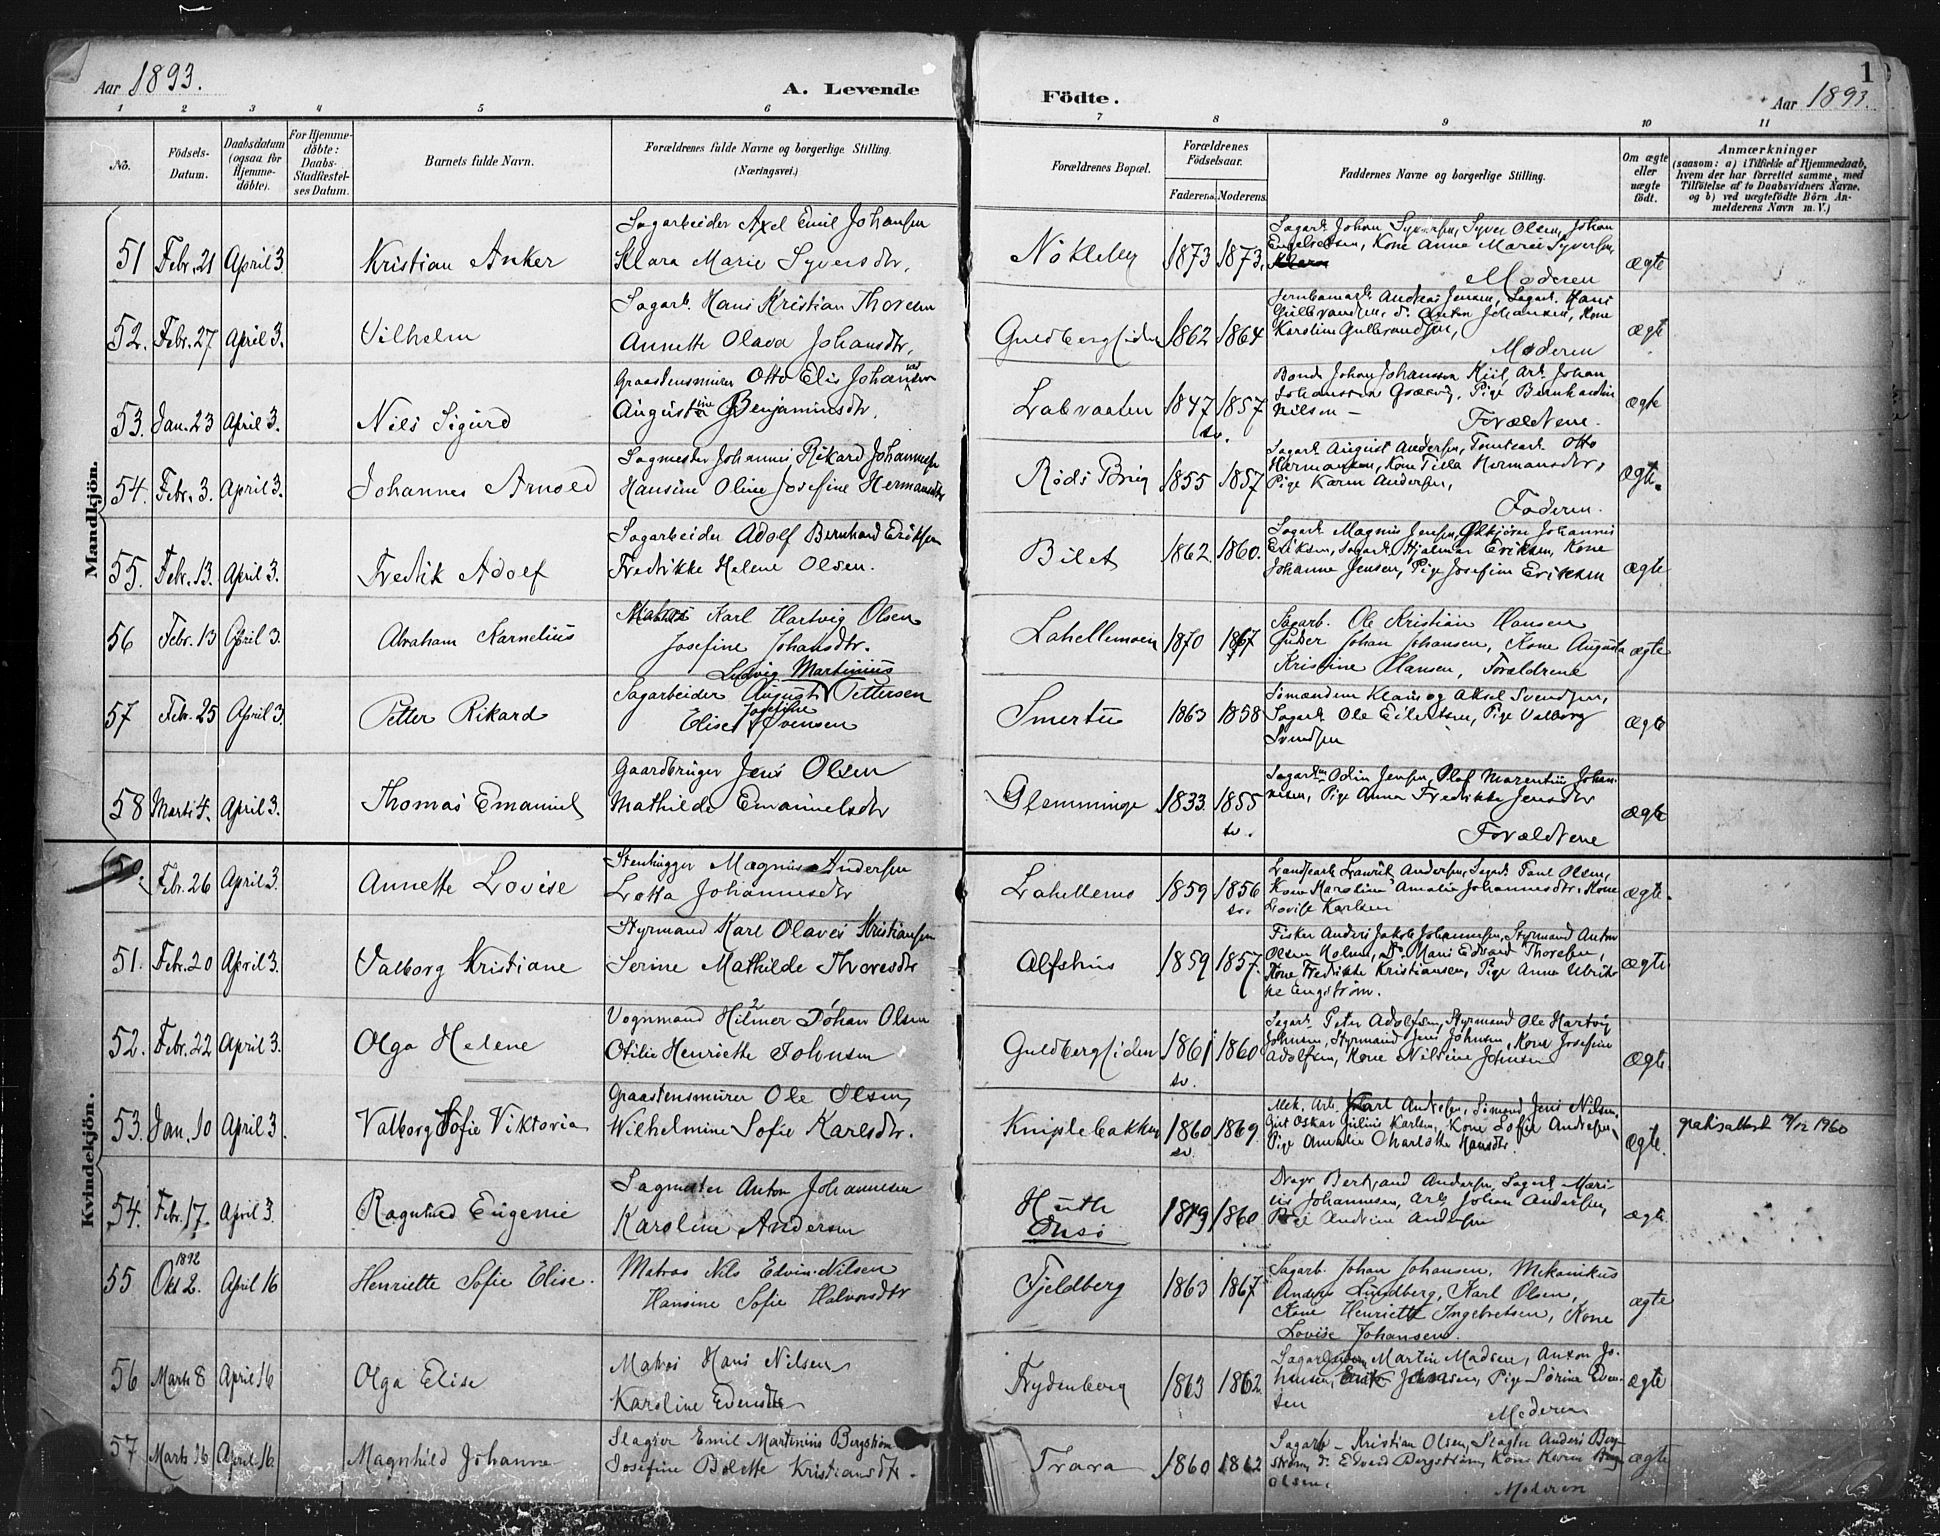 Aar 1893.
A. Levende
Födte.
Aar 1893.
1
1 2 3 4 5 6 7 8 9 10 11
No.
Födsels-
Datum.
Daabsdatum
(ogsaa for
Hjemme-
döbte).
For Hjemme-
döbte:
Daabs-
Stadfæstel-
ses Datum.
Barnets fulde Navn.
Forældrenes fulde Navne og borgerlige Stilling.
(Næringsvei.)
Forældrenes Bopæl.
Forældrenes
Födselsaar.
Faderens. Moderens.
Faddernes Navne og borgerlige Stilling.
Om ægte
eller
uægte
født.
Anmærkninger
(saasom: a) i Tilfælde af Hjemmedaab,
hvem der har forrettet samme, med
Tilføielse af to Daabsvidners Navne,
og b) ved uægtefödte Börn An-
melderens Navn m. V.)
Mandkjön.
51 Febr. 21 April 3. Kristian Anker
Sagarbeider Axel Emil Johansen
Klara Marie Syversdtr.
Nökleby 1873 1873.
Sagarb. Johan Syversen, Syver Olsen, Johan
Engebretsen, Kone Anna Marie Syversen,
Moderen
ægte
52. Febr. 27 April 3. Vilhelm
Sagarb. Hans Kristian Thoresen
Annette Olava Johansdtr.
Guldbergsiden 1862 1864
Jernbanearb. Andreas Jensen, Sagarb. Hans
Gulbrandsen, do. Anton Johansen, Kone
Karoline Gulbrandsen,
Moderen
ægte
53. Jan. 23 April 3. Nils Sigurd
Graastensmurer Otto Elis Johansson
Augustine Benjaminsdtr.
Labraaten 1847 1857
sv.
Bonde Johan Johansson Kiil, Arb. Johan
Johansson Greaker, Pige Bernhardin
Nilsen –
Forældrene.
ægte
54. Febr. 3. April 3. Johannes Arnold
Sagmester Johannes Rikard Johannesen
Hansine Oline Josefine Hermansdtr
Röds Brug 1855 1857
Sagarb. August Andersen, Tomtearb. Otto
Hermansen, Kone Tilla Hermansdtr,
Pige Karen Andersen,
Faderen.
Ægte.
55. Febr. 13. April 3. Fredrik Adolf
Sagarbeider Adolf Bernhard Eriksen
Fredrikke Helene Olsen.
Bilet 1862 1860.
Sagarb. Magnus Jensen, Ølkjører Johannes
Eriksen, Sagarb. Hjalmar Eriksen, Kone
Johanne Jensen, Pige Josefine Eriksen
ægte
56 Febr. 13 April 3 Abraham Karnelius
Matros Karl Hartvig Olsen
Josefine Johansdtr.
Lahellemoen 1870 1867
Sagarb. Ole Kristian Hansen
Johan Johansen, Kone Augusta
Kristine Hansen, Forældrene
ægte
57 Febr. 25 April 3. Petter Rikard
Ludvig Martinius
Sagarbeider August Pettersen
Josefine
Elise Svensen
Smertu 1863 1858
Sömændene Klaus og Aksel Svendsen,
Sagarb. Ole Eilertsen, Pige Valborg
Svendsen
ægte
58 Marts 4. April 3. Thomas Emanuel
Gaardbruger Jens Olsen
Mathilde Emanuelsdtr
Glemminge 1833 1855
sv.
Sagarb. Odin Jensen, Olaf Marentius Johan-
nesen, Pige Anna Fredrikke Jensdtr
Forældrene
ægte
Kvindekjön.
50. Febr. 26 April 3. Annette Lovise
Stenhugger Magnus Andersen
Lotta Johannesdtr
Lahellemo 1859 1856
sv.
Laurits Andersen, Sagarb. Paul Olsen,
Kone Karoline Amalie Johannesdtr, Kone
Lovise Karlsen
ægte.
51. Febr. 20 April 3. Valborg Kristiane
Styrmand Karl Olaves Kristiansen
Serine Mathilde Thoresdtr
Alfshus 1859 1857.
Fisker Anders Jakob Johannesen, Styrmand Anton
Olsen Holm, do. Hans Edvard Thoresen,
Kone Fredrikke Kristiansen, Pige Anna Ulrik-
ke Engström.
ægte
52. Febr. 22 April 3. Olga Helene
Vognmand Hilmer Johan Olsen
Otilie Henriette Johnsen
Guldbergsiden 1861 1860
sv.
Sagarb. Peter Adolfsen, Styrmand Ole Hartvig
Johnsen, Styrmand Jens Johnsen, Kone Josefine
Adolfsen, Kone Nilsine Johnsen
ægte.
53. Jan. 10 April 3. Valborg Sofie Viktoria
Graastensmurer Ole Olsen,
Wilhelmine Sofie Karlsdtr.
Kniplebakken 1860 1869.
sv.
Mek. Arb. Karl Andresen, Sömand Jens Nilsen,
Gut Oskar Julius Karlsen, Kone Sofie Andresen,
Pige Amalie Charlotte Hansdtr.
ægte.
gratisattest 19/12 1960
54. Febr. 17. April 3 Ragnhild Eugenie
Sagmester Anton Johannesen
Karoline Andersen
Huth
Onsö
1859 1860
Dragr Bertrand Andersen, Sagarb. Mari-
us Johannesen, Arb. Johan Andersen,
Pige Andrine Andersen
ægte.
55 1892 Okt 2. April 16 Henriette Sofie Elise.
Matros Nils Edvin Nilsen
Hansine Sofie Halvorsdtr
Fjeldberg 1863 1867
Sagarb. Johan Johansen, Mekanikus
Anders Lundberg, Karl Olsen,
Kone Henriette Ingebretsen, Kone
Lovise Johansen.
ægte
56 Marts 8 April 16 Olga Elise
Matros Hans Nilsen
Karoline Evensdtr
Frydenberg 1863 1862
Sagarbeiderne Martin Madsen, Anton Jo-
hansen, Erik Jensen, Pige Sörine Even-
sen
Moderen
ægte
57 Marts 16 April 16. Magnhild Johanne
Slagter Emil Martinius Bergström
Josefine Bolette Kristiansdtr.
Trara 1860 1862
Sagarb – Kristian Olsen, Slagter Anders Berg-
ström, do. Edvard Bergström, Kone Karen
Olsen,
Moderen
ægte